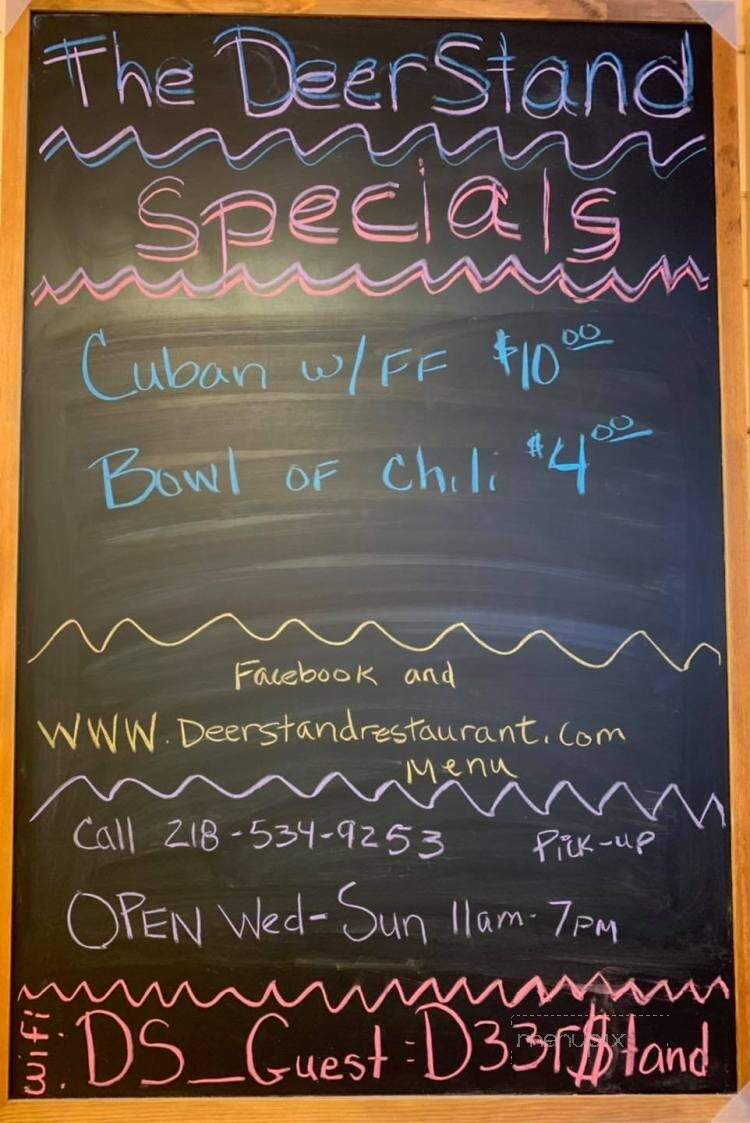 The DeerStand
Specials
Cuban w/FF $10.00
Bowl of Chili $4.00
Facebook and
WWW.Deerstandrestaurant.com
Menu
Call 218-534-9253 Pick-up
OPEN Wed-Sun 11am-7pm
wifi: DS_Guest : D33r$tand
menusix